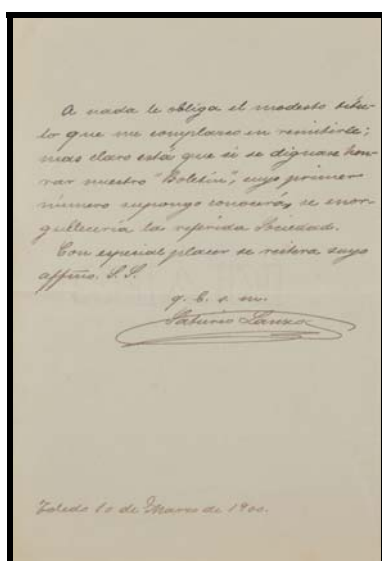 A nada le obliga el modesto títu-
lo que me complazco en remitirle;
mas claro está que si se dignase hon-
rar nuestro "Boletín", cuyo primer
número supongo conocerá, se enor-
gullecería la referida Sociedad.
Con especial placer se reitera suyo
affmo. S.S.
q. b. s. m.
Saturio Lanza
Toledo 10 de Marzo de 1900.